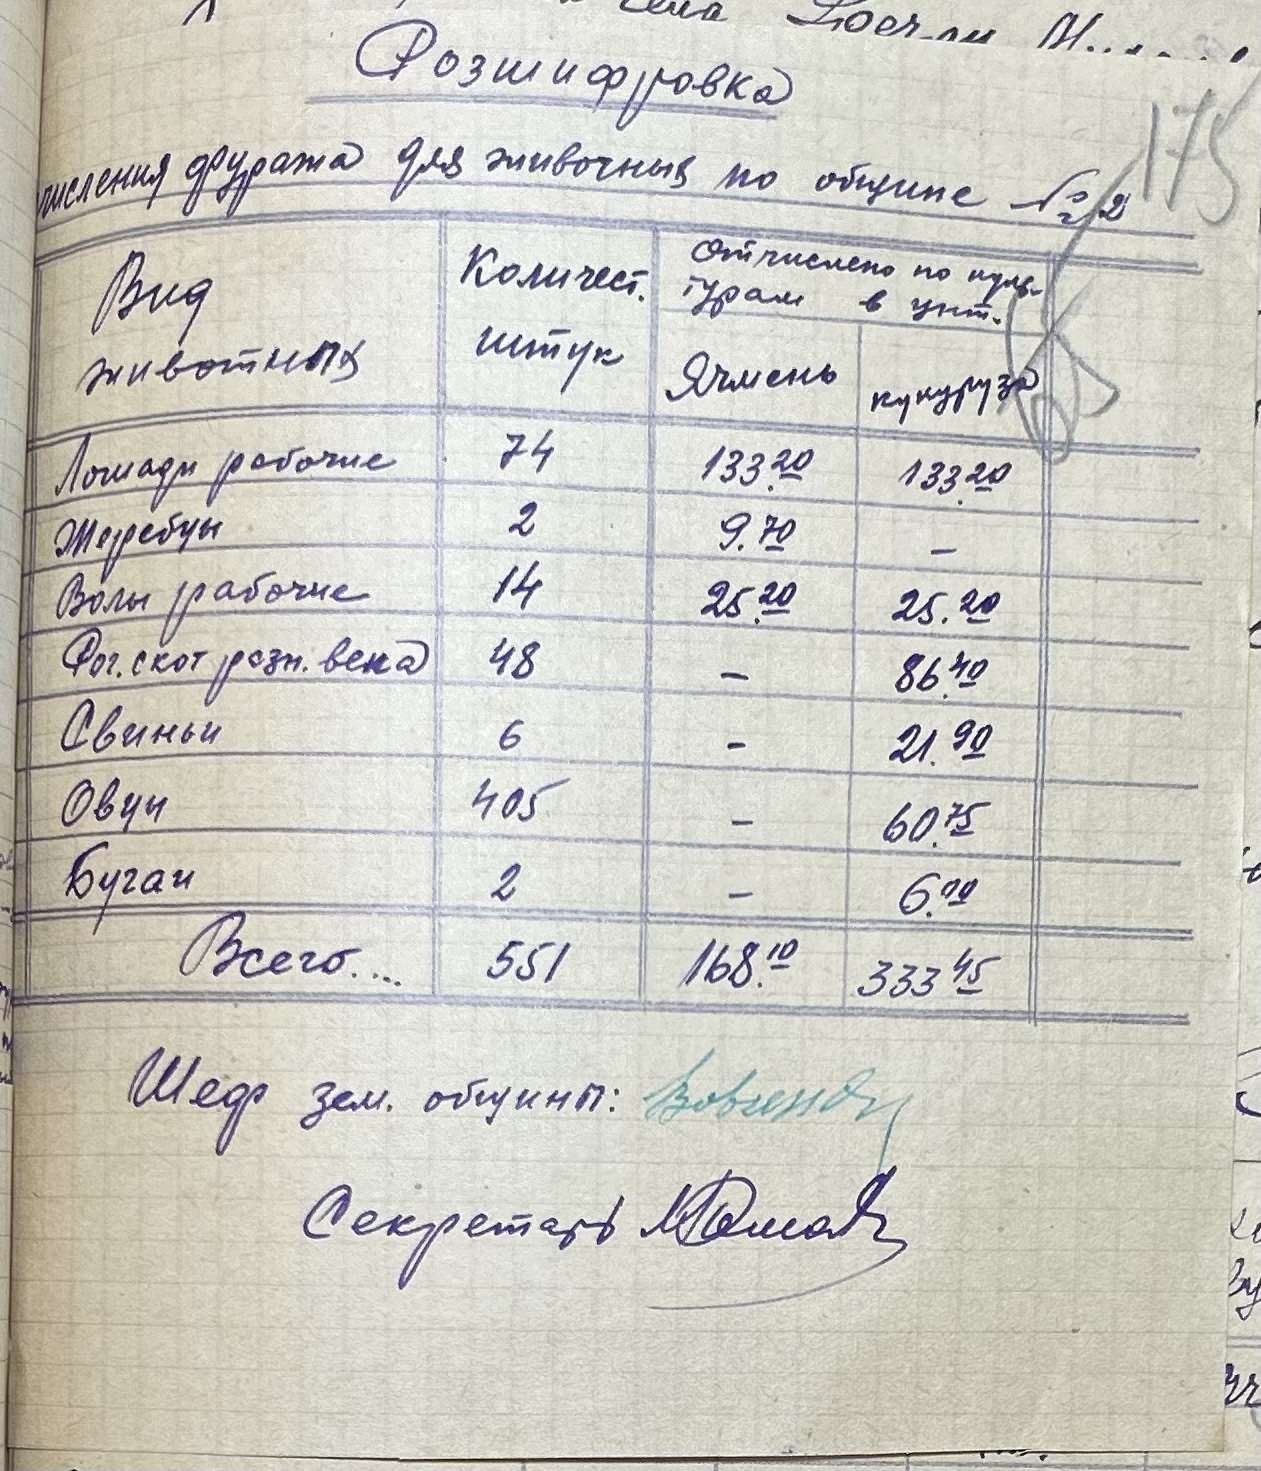 села
Розшифровка
числения фуража для живочных по общине № 2
175
Вид животных
Количест. штук
Отчислено по куль-
турам в цнт.
Ячмень
кукуруза
Лошади рабочие 74 133.20 133.20
Жеребцы 2 9.70 –
Волы рабочие 14 25.20 25.20
Рог. скот разн. века 48 – 86.40
Свиньи 6 – 21.90
Овцы 405 – 60.75
Бугаи 2 –
Всего.... 551 168.10 333 45
Шеф зем. общины:
Секретарь